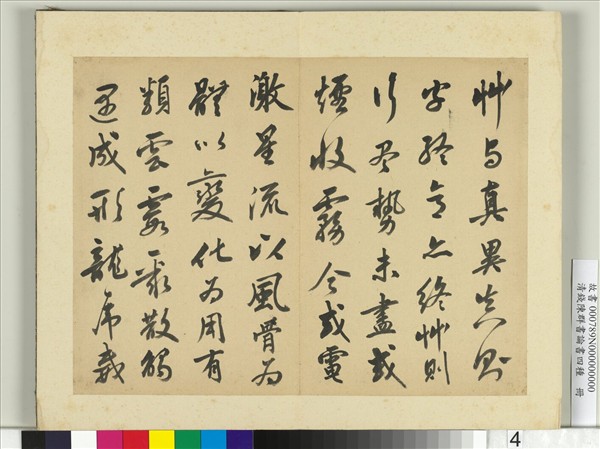 艸与真異真則
字終意亦終艸則
行尽勢未盡或
煙收霧合或電
激星流以風骨為
體以變化為用有
類雲霞聚散觸
遇成形龍虎威
故書 000789N000000000
清錢陳群書論書四種 冊
4